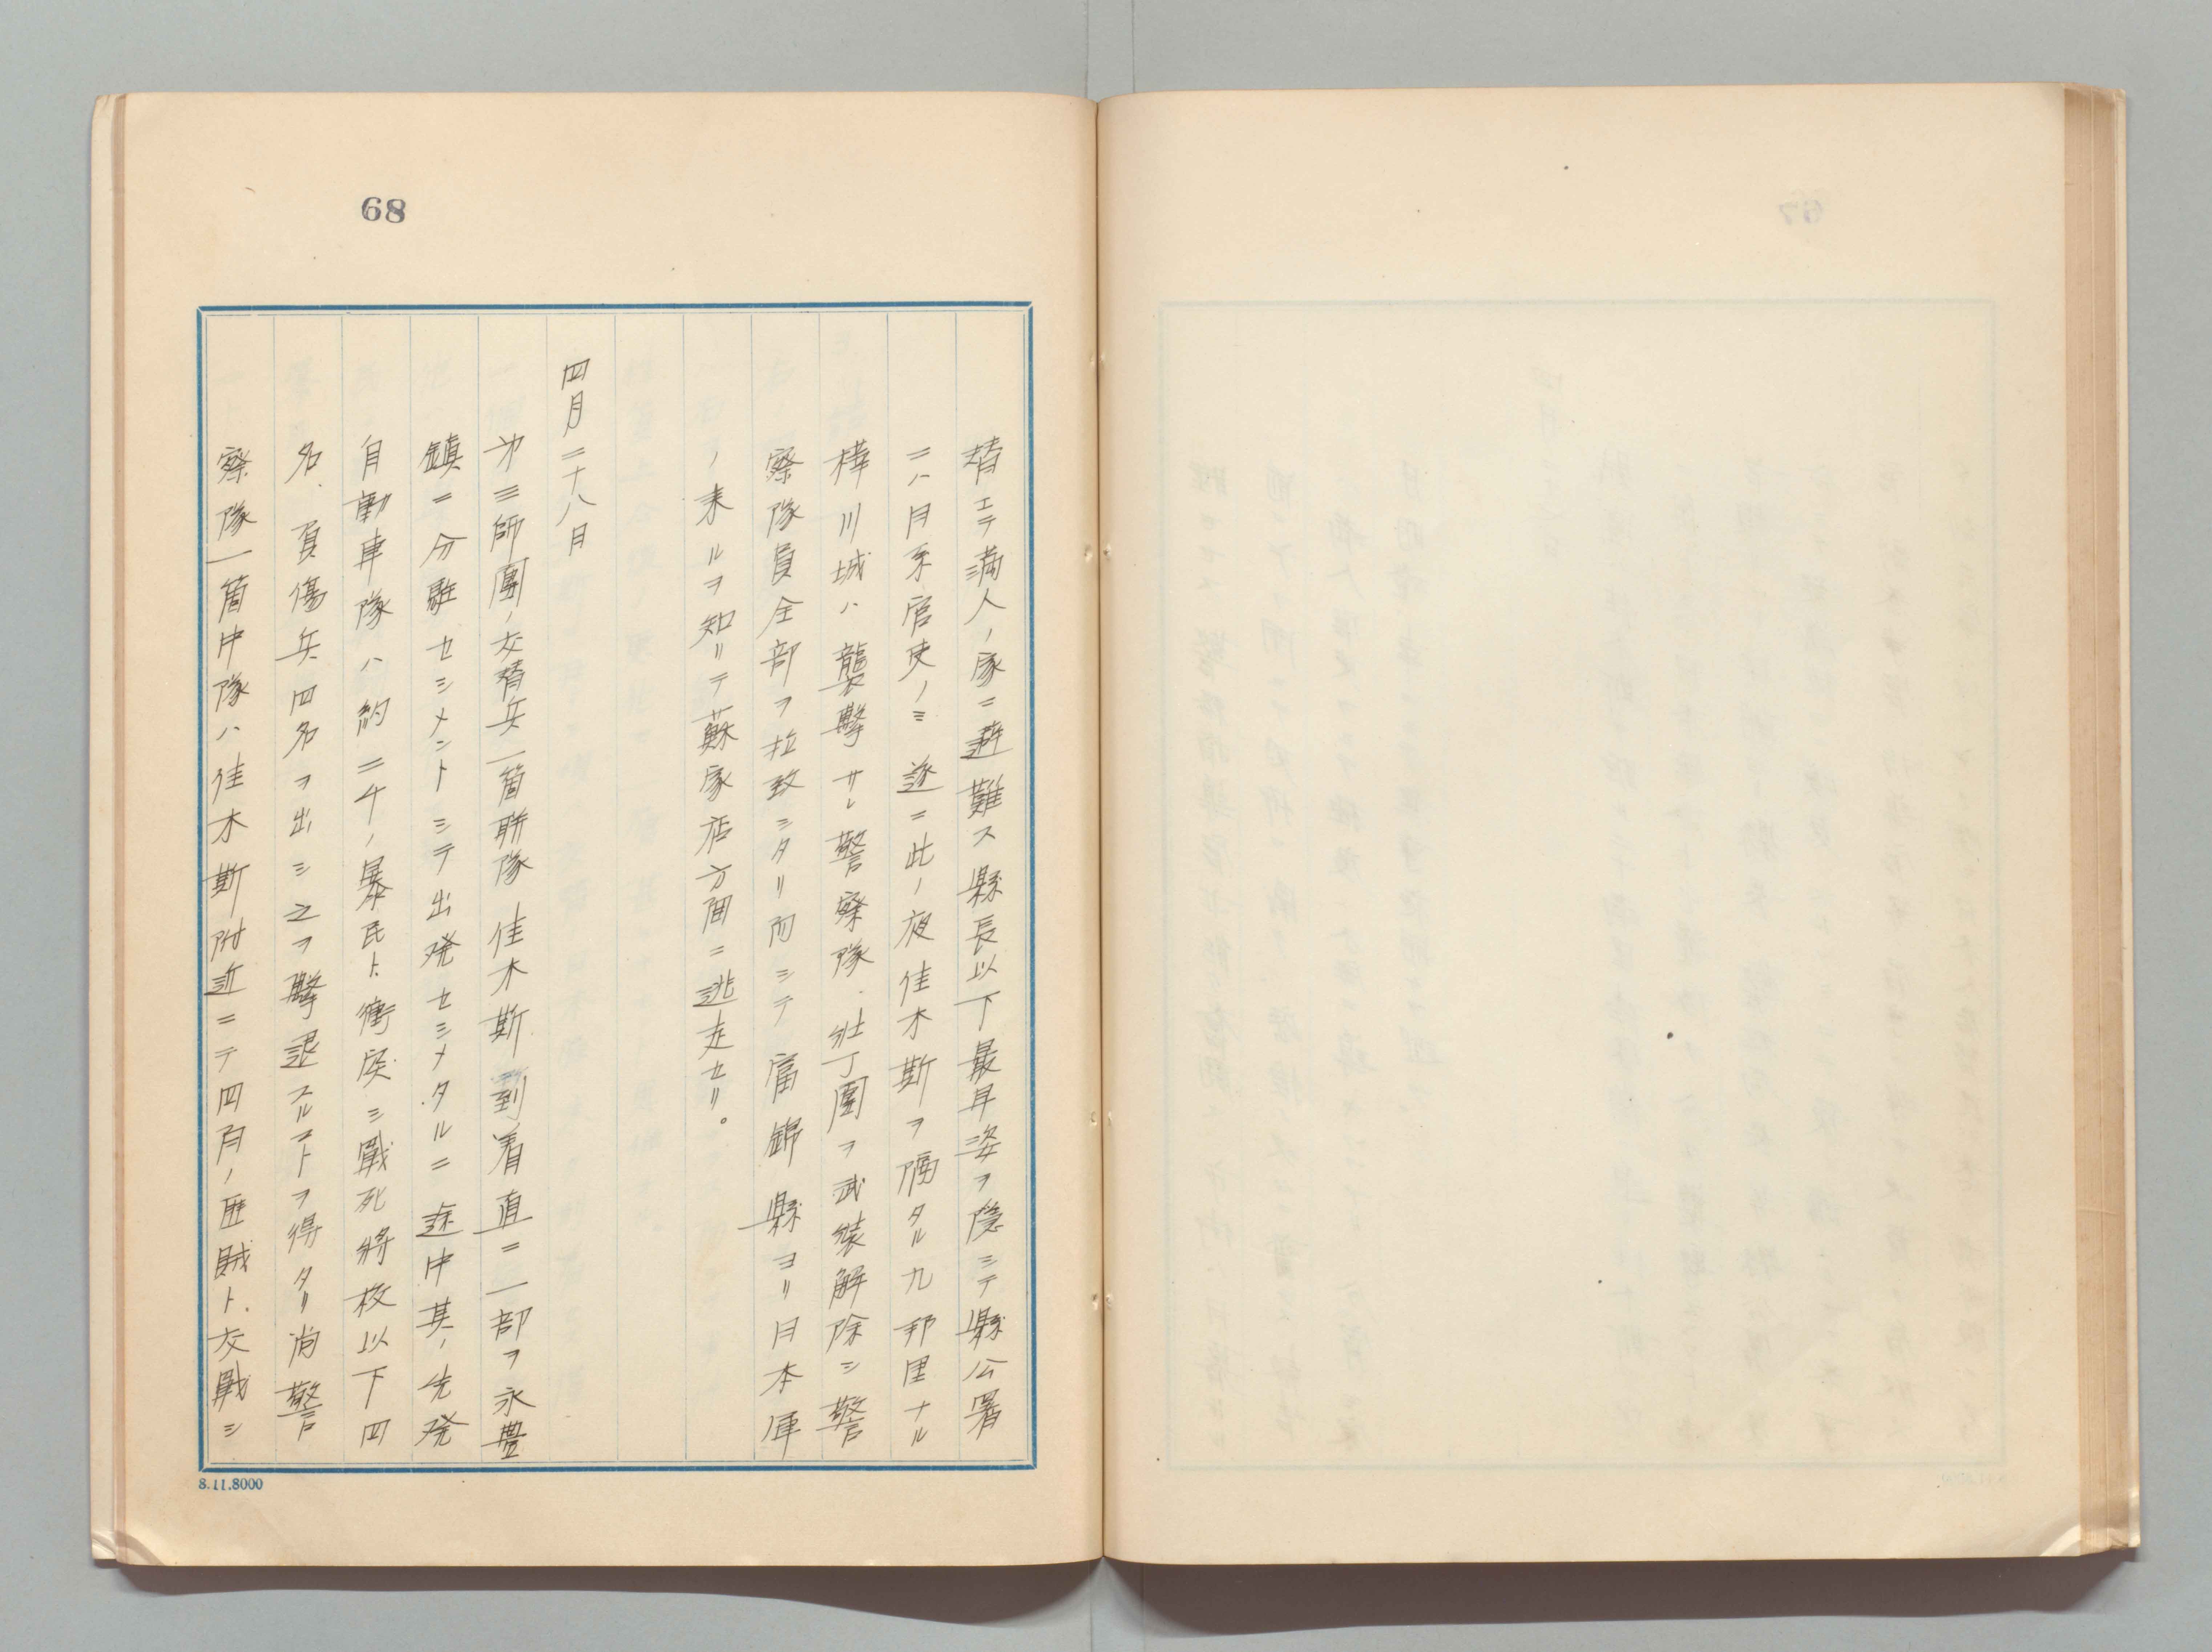 68
替エテ満人ノ家ニ避難ス縣長以下最早姿ヲ隱シテ縣公署
ニハ日系官吏ノミ 遂ニ此ノ夜佳木斯ヲ隔タル九邦里ナル
樺川城ハ襲擊サレ警察隊、壯丁團ヲ武装解除シ警
察隊員全部ヲ拉致シタリ而シテ富錦縣ヨリ日本軍
ノ来ルヲ知リテ蘇家店方面ニ逃走セリ。
四月二十八日
才三師團ノ交替兵一箇聯隊佳木斯到着直ニ一部ヲ永豊
鎮ニ分駐セシメントシテ出発セシメタルニ途中其ノ先発
自動車隊ハ約二千ノ暴民ト衝突シ戰死將校以下四
名、負傷兵四名ヲ出シ之ヲ擊退スルコトヲ得タリ尚警
察隊一箇中隊ハ佳木斯附近ニテ四百ノ匪賊ト交戰シ
8.11.8000